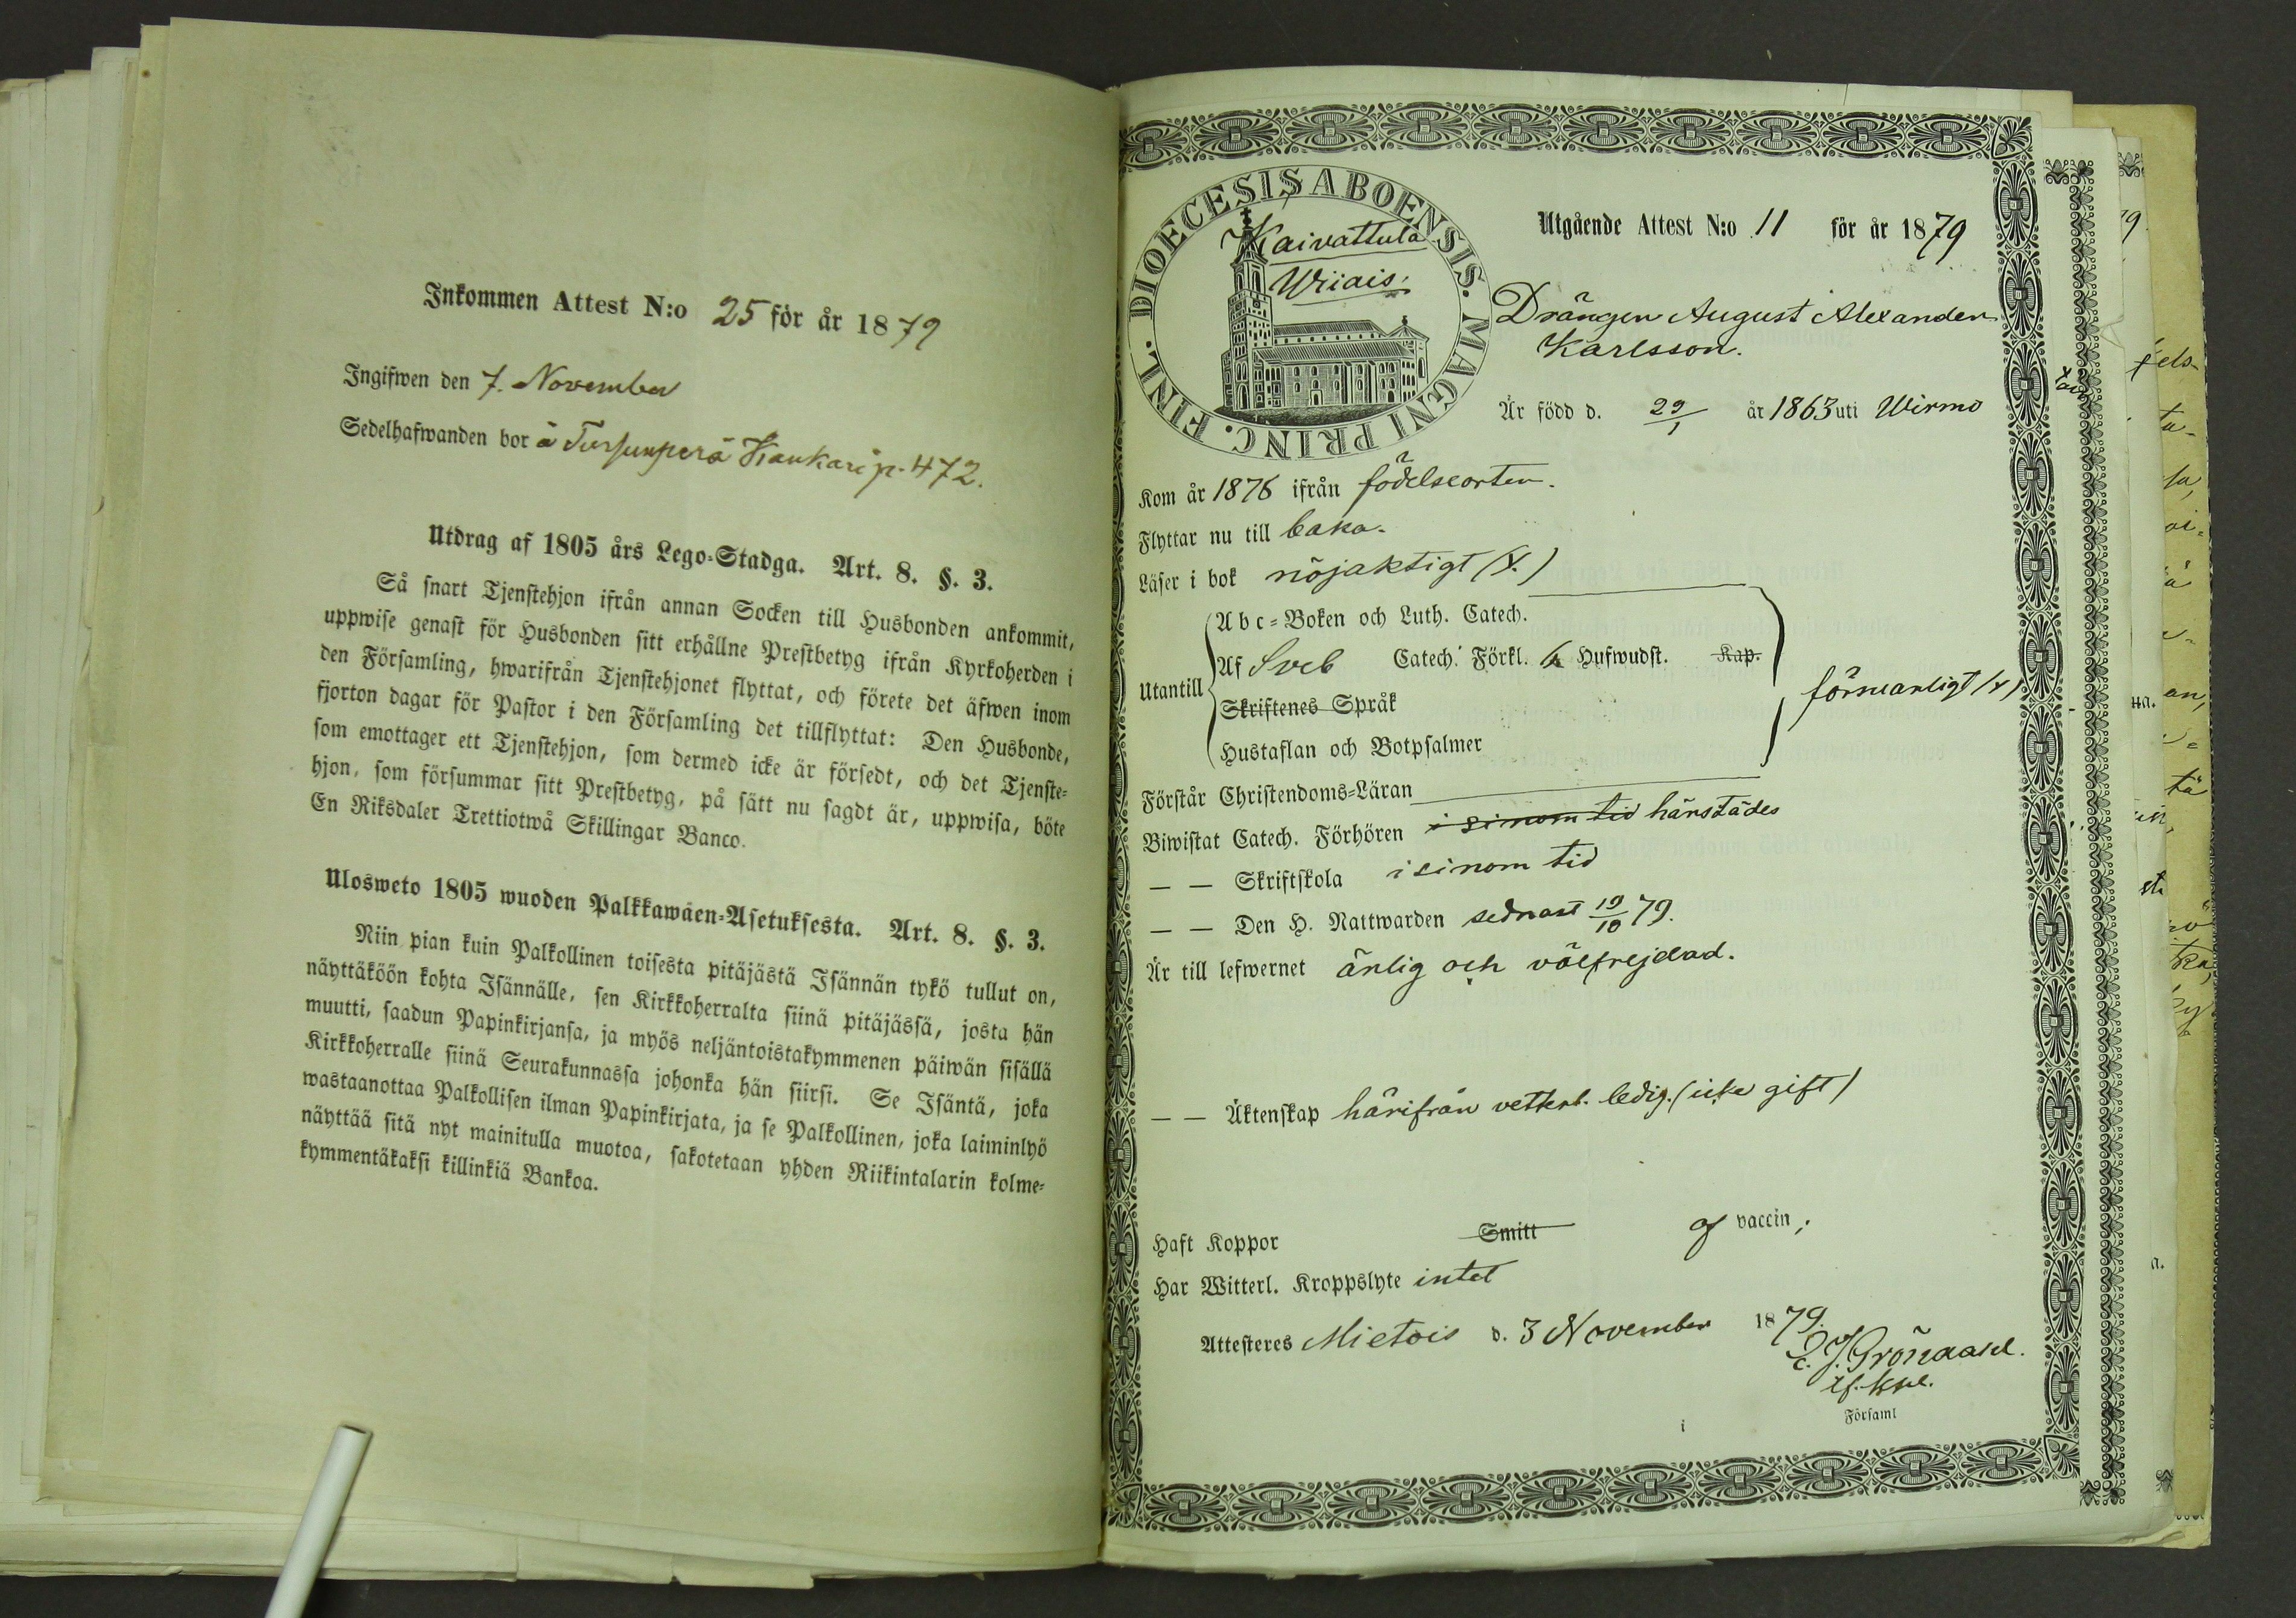 Inkommen Attest N:o 25 för år 1879
Ingifwen den 7. November
Sedelhafwanden bor å Tursunperä Kankari p. 472.
Utdrag af 1805 års Lego-Stadga. Art. 8. §. 3.
Så snart Tjenstehjon ifrån annan Socken till Husbonden ankommit,
uppwise genast för Husbonden sitt erhållne Prestbetyg ifrån Kyrkoherden i
den Församling, hwarifrån Tjenstehjonet flyttat, och förete det äfwen inom
fjorton dagar för Pastor i den Församling det tillflyttat: Den Husbonde,
som emottager ett Tjenstehjon, som dermed icke är försedt, och det Tjenste-
hjon, som försummar sitt Prestbetyg, på sätt nu sagdt är, uppwisa, böte
En Riksdaler Trettiotwå Skillingar Banco.
Ulosweto 1805 wuoden Palkkawäen-Asetuksesta. Art. 8. §. 3.
Niin pian kuin Palkollinen toisesta pitäjästä Isännän tykö tullut on,
näyttäköön kohta Isännälle, sen Kirkkoherralta siinä pitäjässä, josta hän
muutti, saadun Papinkirjansa, ja myös neljäntoistakymmenen päiwän sisällä
Kirkkoherralle siinä Seurakunnassa johonka hän siirsi. Se Isäntä, joka
wastaanottaa Palkollisen ilman Papinkirjata, ja se Palkollinen, joka laiminlyö
näyttää sitä nyt mainitulla muotoa, sakotetaan yhden Riikintalarin kolme-
kymmentäkaksi killinkiä Bankoa.
DIOECESIS ABOENSIS. MAGNI PRINC. FINL.
Kaivattula
Wiiais
Utgående Attest N:o 11 för år 1879
Drängen August Alexander
Karlsson.
Är född d. 29/1 år 1863 uti Wirmo
Kom år 1878 ifrån födelseorten.
Flyttar nu till baka.
Läser i bok nöjaktigt (x.)
Utantill
Abc-Boken och Luth. Catech.
Af Sveb Catech. Förkl. 6 Hufwudst. Kap.
Skriftenes Språk
Hustaflan och Botpsalmer
försvarligt (x)
Förstår Christendoms-Läran
Biwistat Catech. Förhören i sinom tid härstädes
— — Skriftskola i sinom tid
— — Den H. Nattwarden sednast 19/10 79.
Är till lefwernet ärlig och välfrejdad.
— — Äktenskap härifrån vetterl. ledig. (icke gift)
Haft Koppor Smitt af vaccin;
Har Witterl. Kroppslyte intet
Attesteres Mietois d. 3 November 1879.
J. Gröndahl.
i Församl